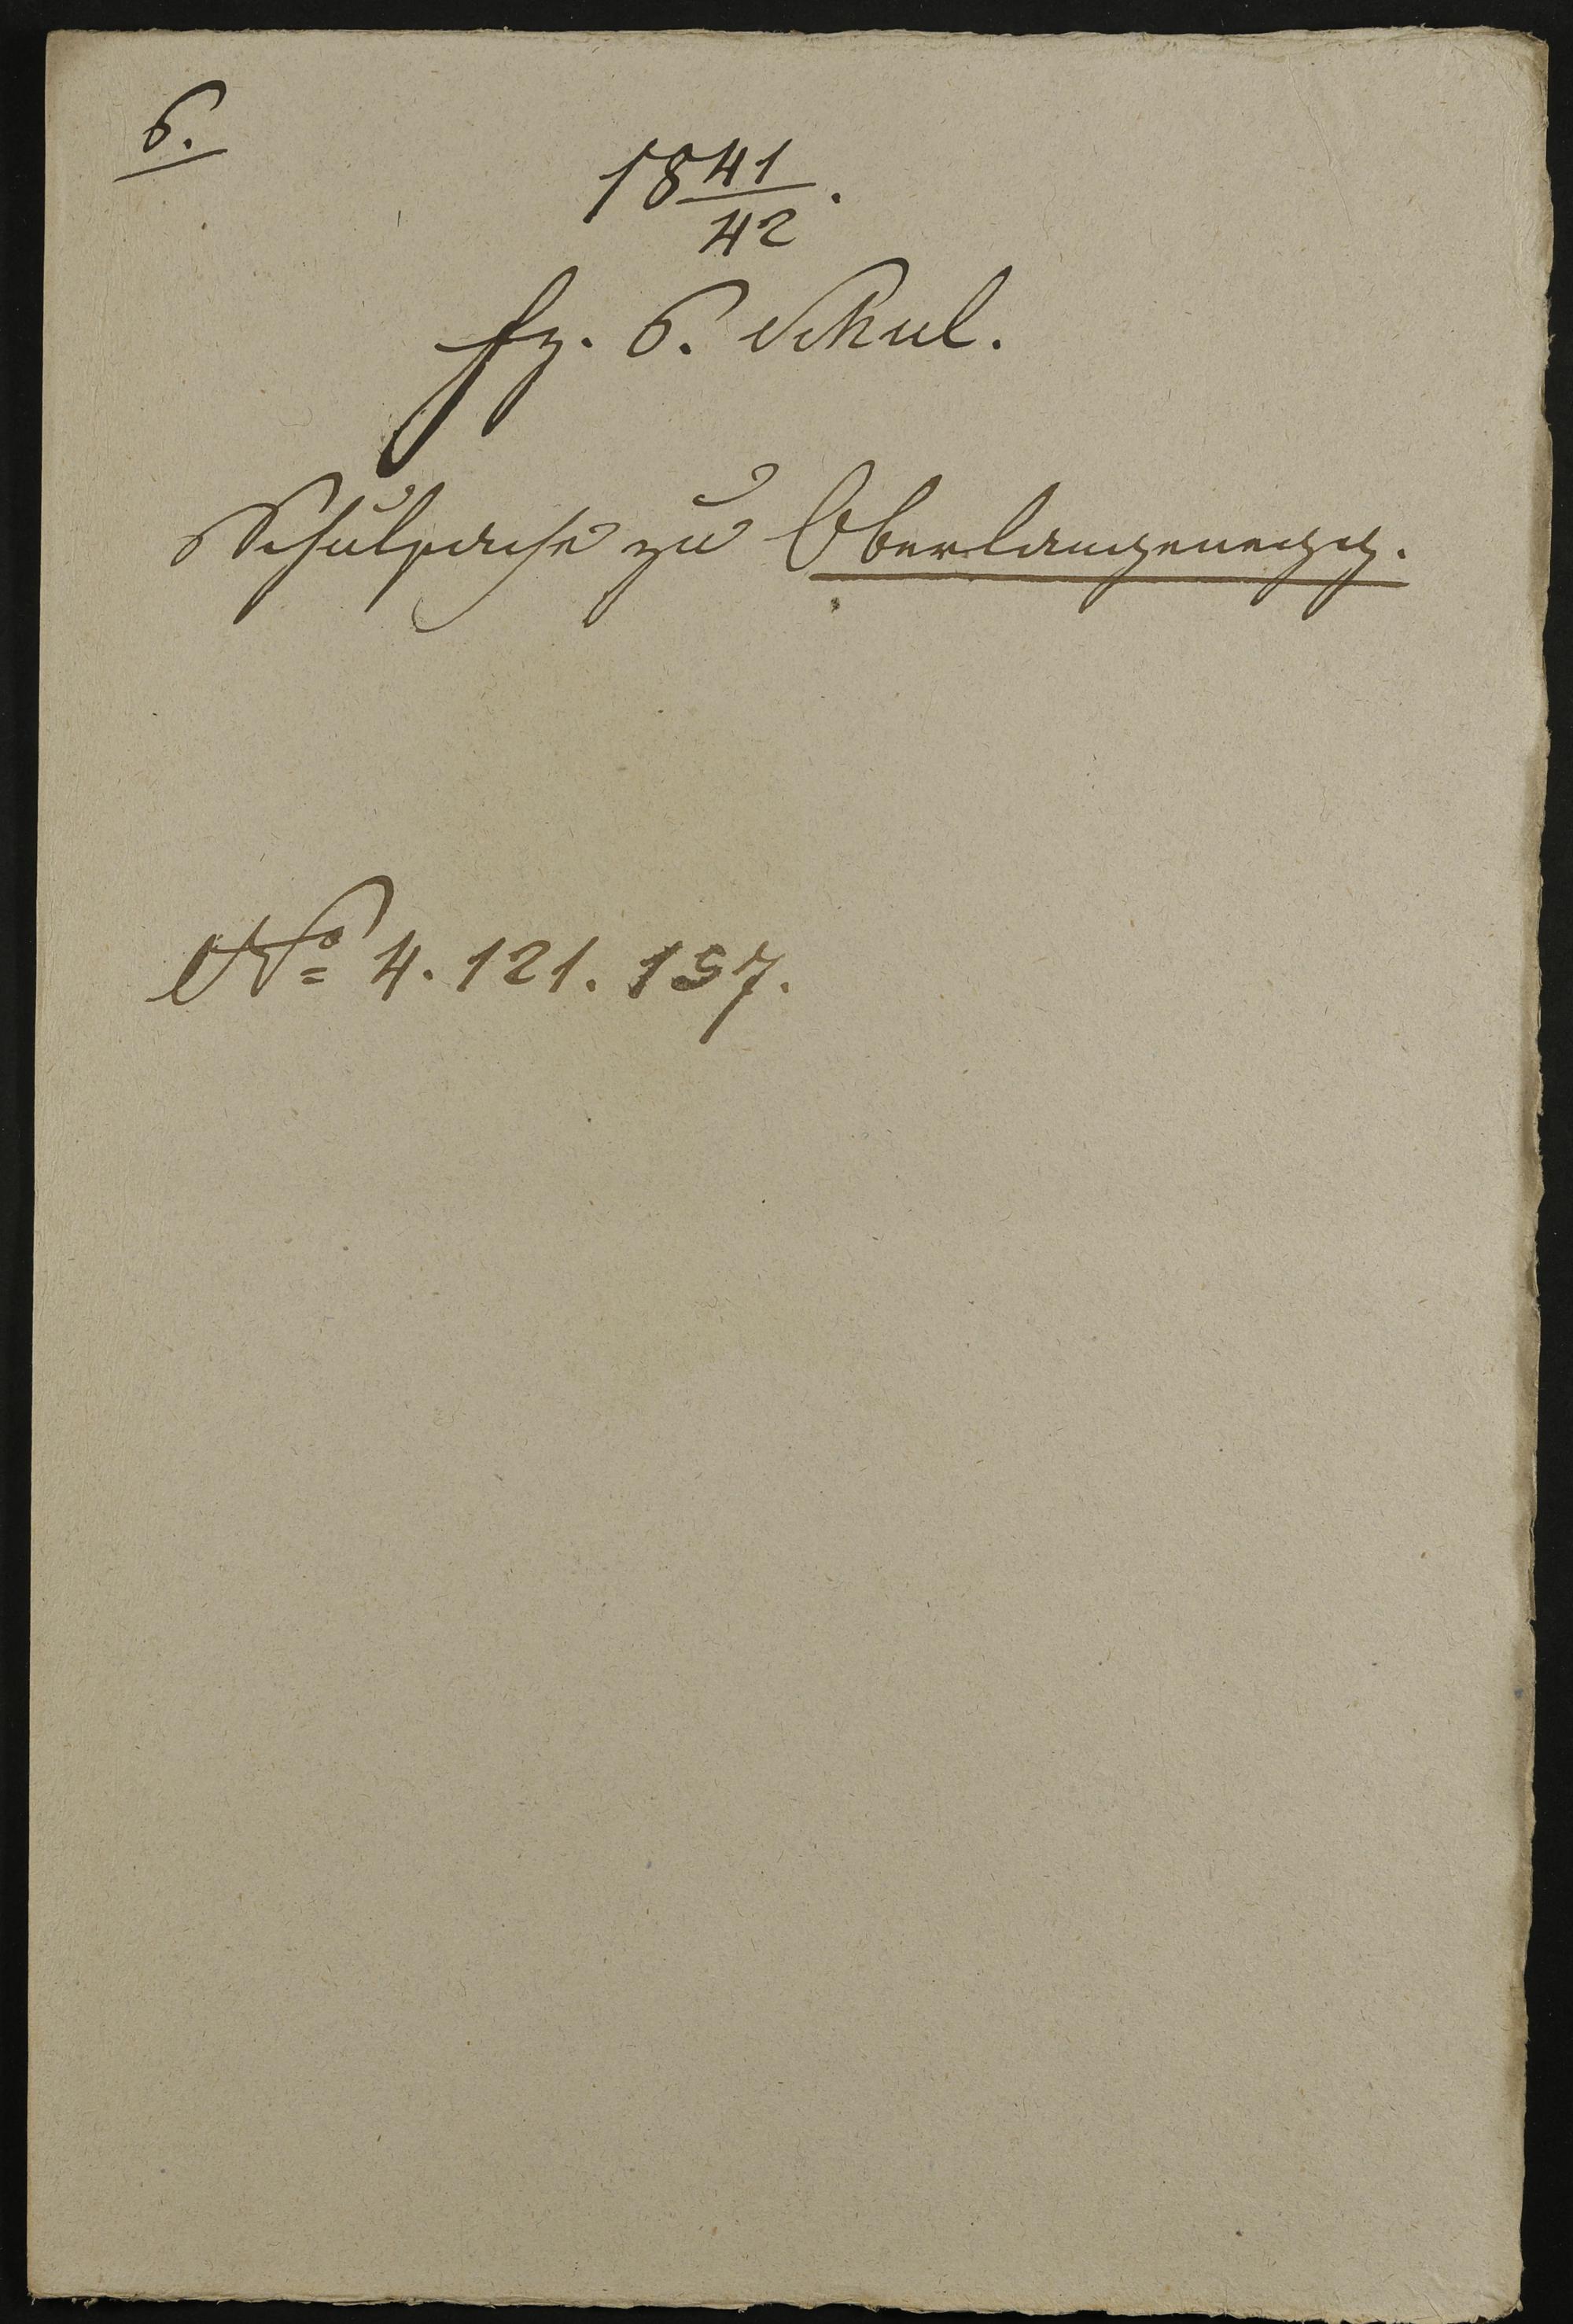 6.
18 41/42.
fz. 6. Schul.
Schulsache zu Oberlangenegg.
No 4. 121. 157.